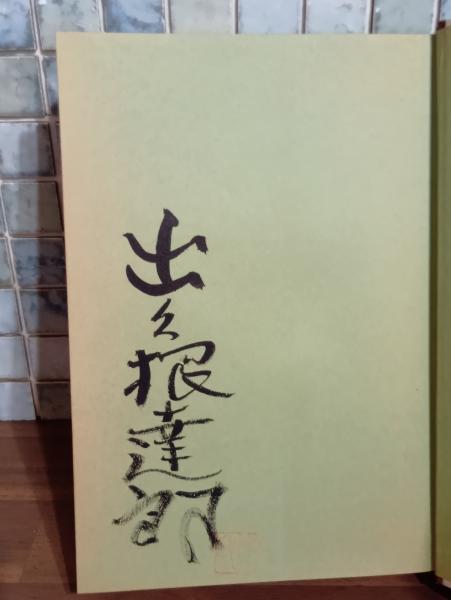 出久根達郎